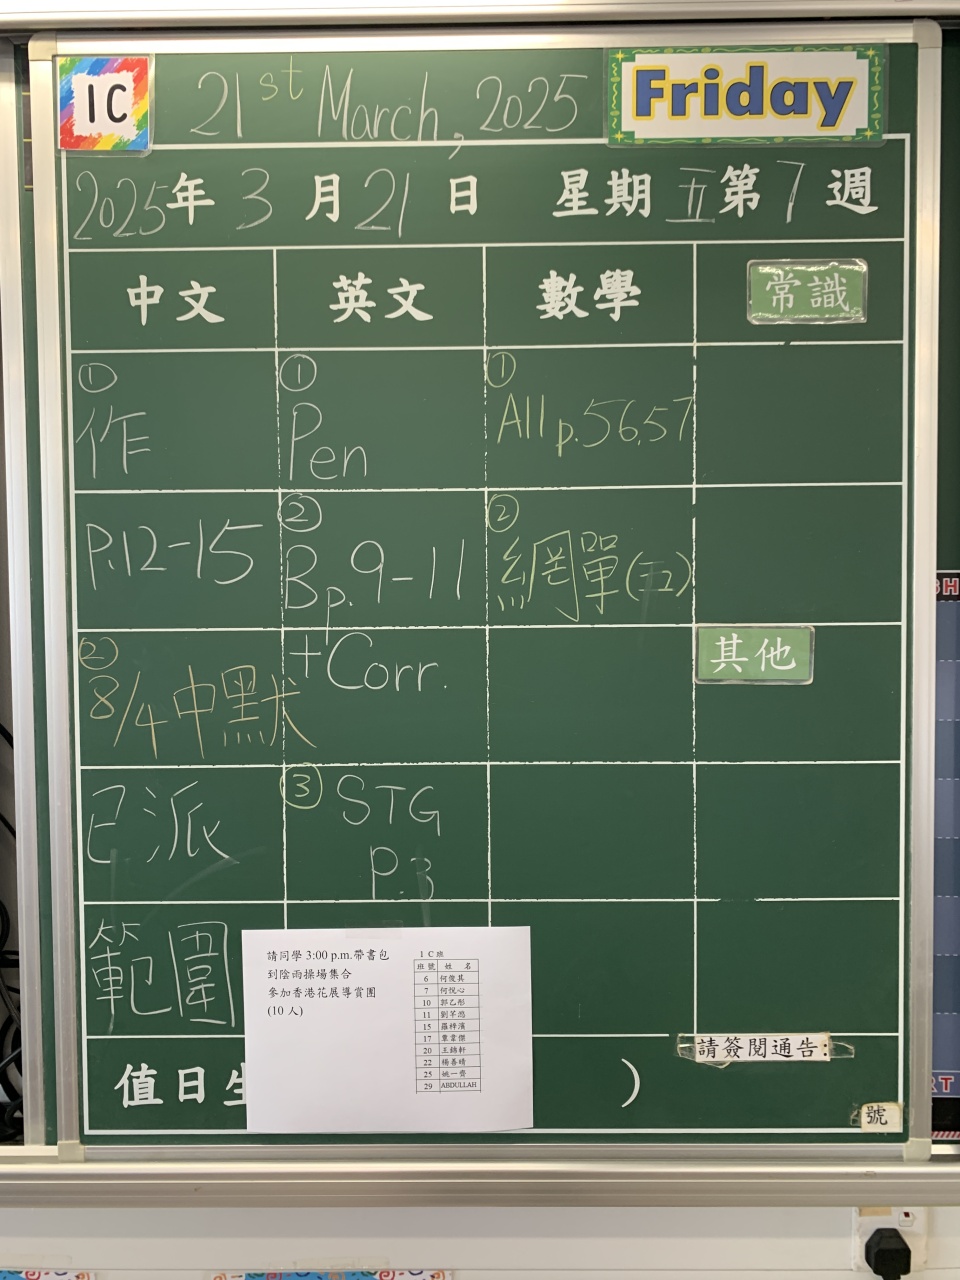 1C
21st March, 2025
Friday
2025年3月21日 星期五第7週
中文 英文 數學 常識
①
作
P.12-15
②
8/4中默
已派
範圍
①
Pen
②
B p.9-11
+Corr.
③ STG
P.3
①
All p.56,57
②
網單(五2)
其他
請同學 3:00 p.m.帶書包
到陰雨操場集合
參加香港花展導賞團
(10 人)
1C班
班號 姓 名
6 何俊其
7 何悅心
10 郭乙彤
11 劉芊滺
15 羅梓濱
17 覃韋傑
20 王錦軒
22 楊喜晴
25 姚一齊
29 ABDULLAH
請簽閱通告:
號
值日生
)